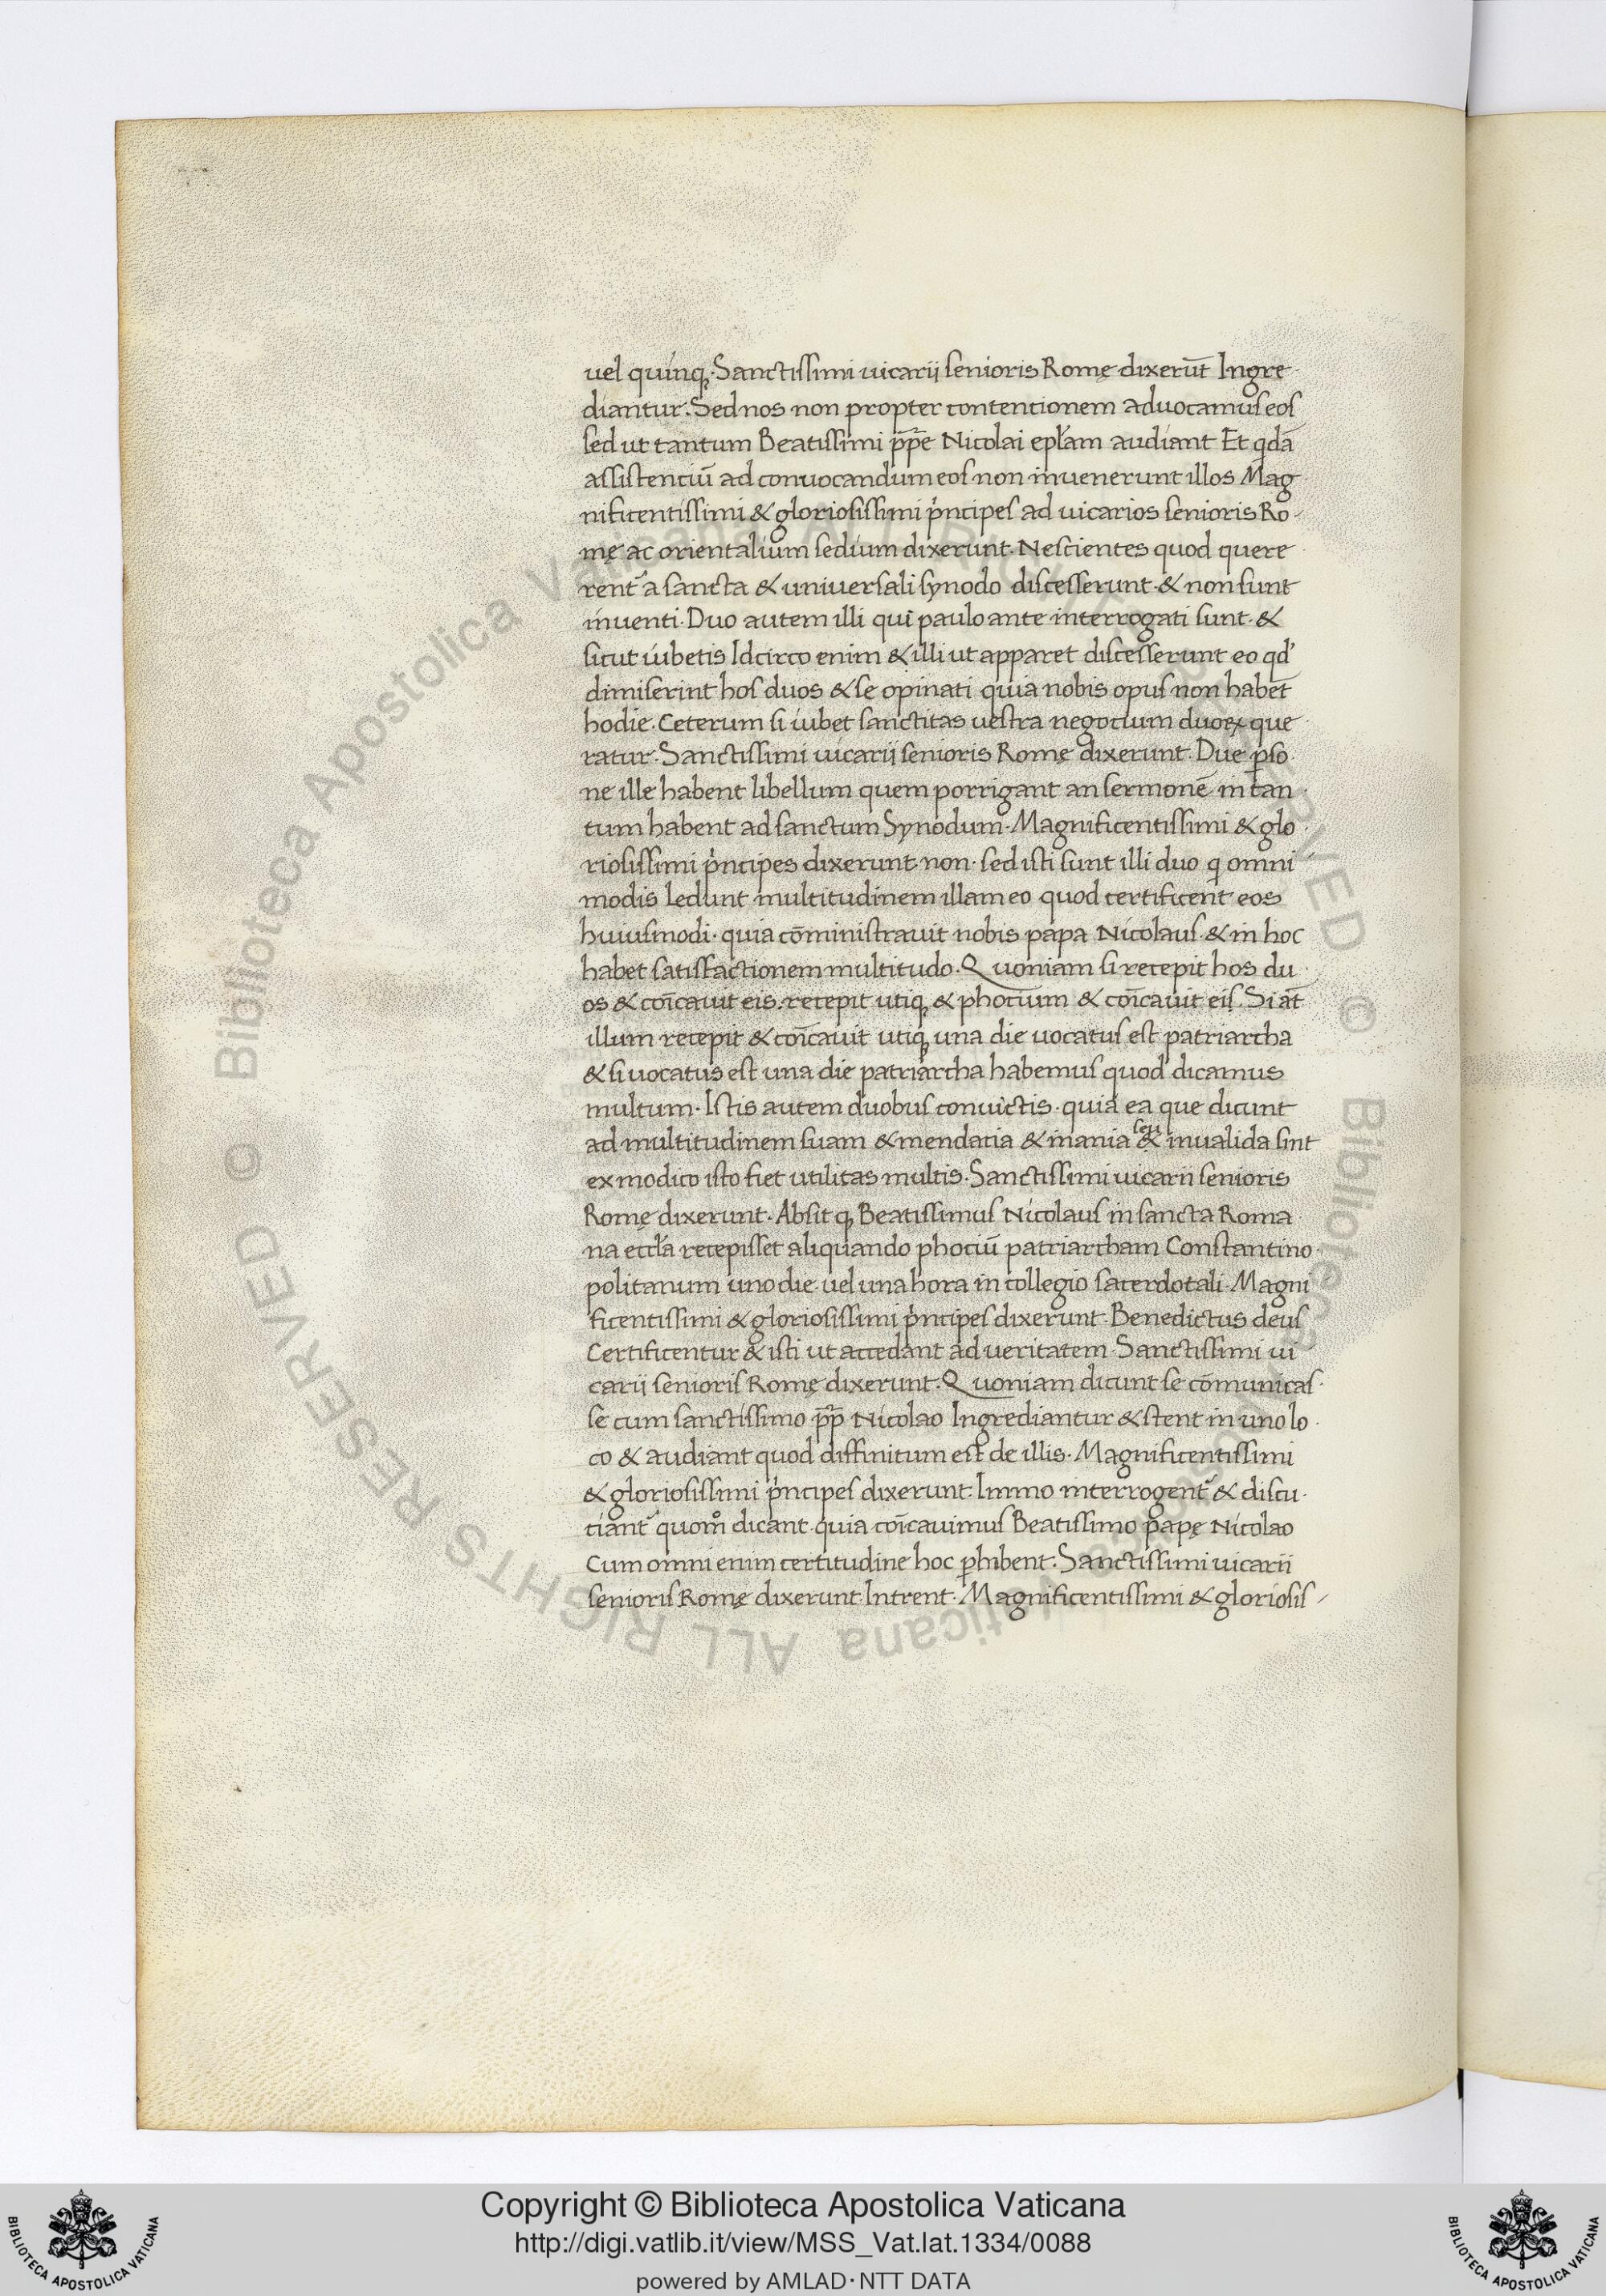 uel quinq;· Sanctissimi uicarij senioris Romę dixerūt Ingre
diantur. Sed nos non propter contentionem aduocamus eos
sed ut tantum Beatissimi p̄p̄e Nicolai epl̄am audiant Et qdā
assistenciū ad conuocandum eos non inuenerunt illos Mag
nificentissimi & gloriosissimi pͥncipes ad uicarios senioris Ro-
mę ac orientalium sedium dixerunt· Nescientes quod quere
rent᷑ a sancta & uniuersali synodo discesserunt· & non sunt
inuenti· Duo autem illi qui paulo ante interrogati sunt· &
sicut iubetis Idcirco enim & illi ut apparet discesserunt eo qd'
dimiserint hos duos & se opinati quia nobis opus non habet
hodie· Ceterum si iubet sanctitas uestra negotium duoꝝ que
ratur· Sanctissimi uicarij senioris Romę dixerunt· Due ꝑso
ne ille habent libellum quem porrigant an sermonē in tan
tum habent ad sanctum Synodum· Magnificentissimi & glo
riosissimi pͥncipes dixerunt non· sed isti sunt illi duo q omni
modis ledunt multitudinem illam eo quod certificent eos
huiusmodi· quia cōministrauit nobis papa Nicolaus· & in hoc
habet satisfactionem multitudo· Quoniam si recepit hos du
os & coīcauit eis· recepit utiq; & phocium & coīcauit eis· Si āt
illum recepit & coīcauit utiq; una die uocatus est patriarcha
& si uocatus est una die patriarcha habemus quod dicamus
multum· Istis autem duobus conuictis· quia ea que dicunt
ad multitudinem suam & mendacia & inania seu & inualida sint
ex modico isto fiet utilitas multis· Sanctissimi uicarii senioris
Romę dixerunt· Absit q; Beatissimus Nicolaus in sancta Roma
na eccl̄a recepisset aliquando phociū patriarcham Constantino
politanum uno die uel una hora in collegio sacerdotali· Magni
ficentissimi & gloriosissimi pͥncipes dixerunt· Benedictus deus
Certificentur & isti ut accedant ad ueritatem· Sanctissimi ui
carij senioris Romę dixerunt· Quoniam dicunt se cōmunicas
se cum sanctissimo p̄p̄ Nicolao Ingrediantur & stent in uno lo
co & audiant quod diffinitum est de illis· Magnificentissimi
& gloriosissimi pͥncipes dixerunt· Immo interrogent᷑ & discu
tiant᷑ quom̊ dicant quia coīcauimus Beatissimo papę Nicolao
Cum omni enim certitudine hoc ꝑhibent· Sanctissimi uicarii
senioris Romę dixerunt· Intrent· Magnificentissimi & gloriosis-
© Biblioteca Apostolica Vaticana ALL RIGHTS RESERVED
© Biblioteca Apostolica Vaticana ALL RIGHTS RESERVED
Copyright © Biblioteca Apostolica Vaticana
http://digi.vatlib.it/view/MSS_Vat.lat.1334/0088
powered by AMLAD·NTT DATA
BIBLIOTECA APOSTOLICA VATICANA
BIBLIOTECA APOSTOLICA VATICANA